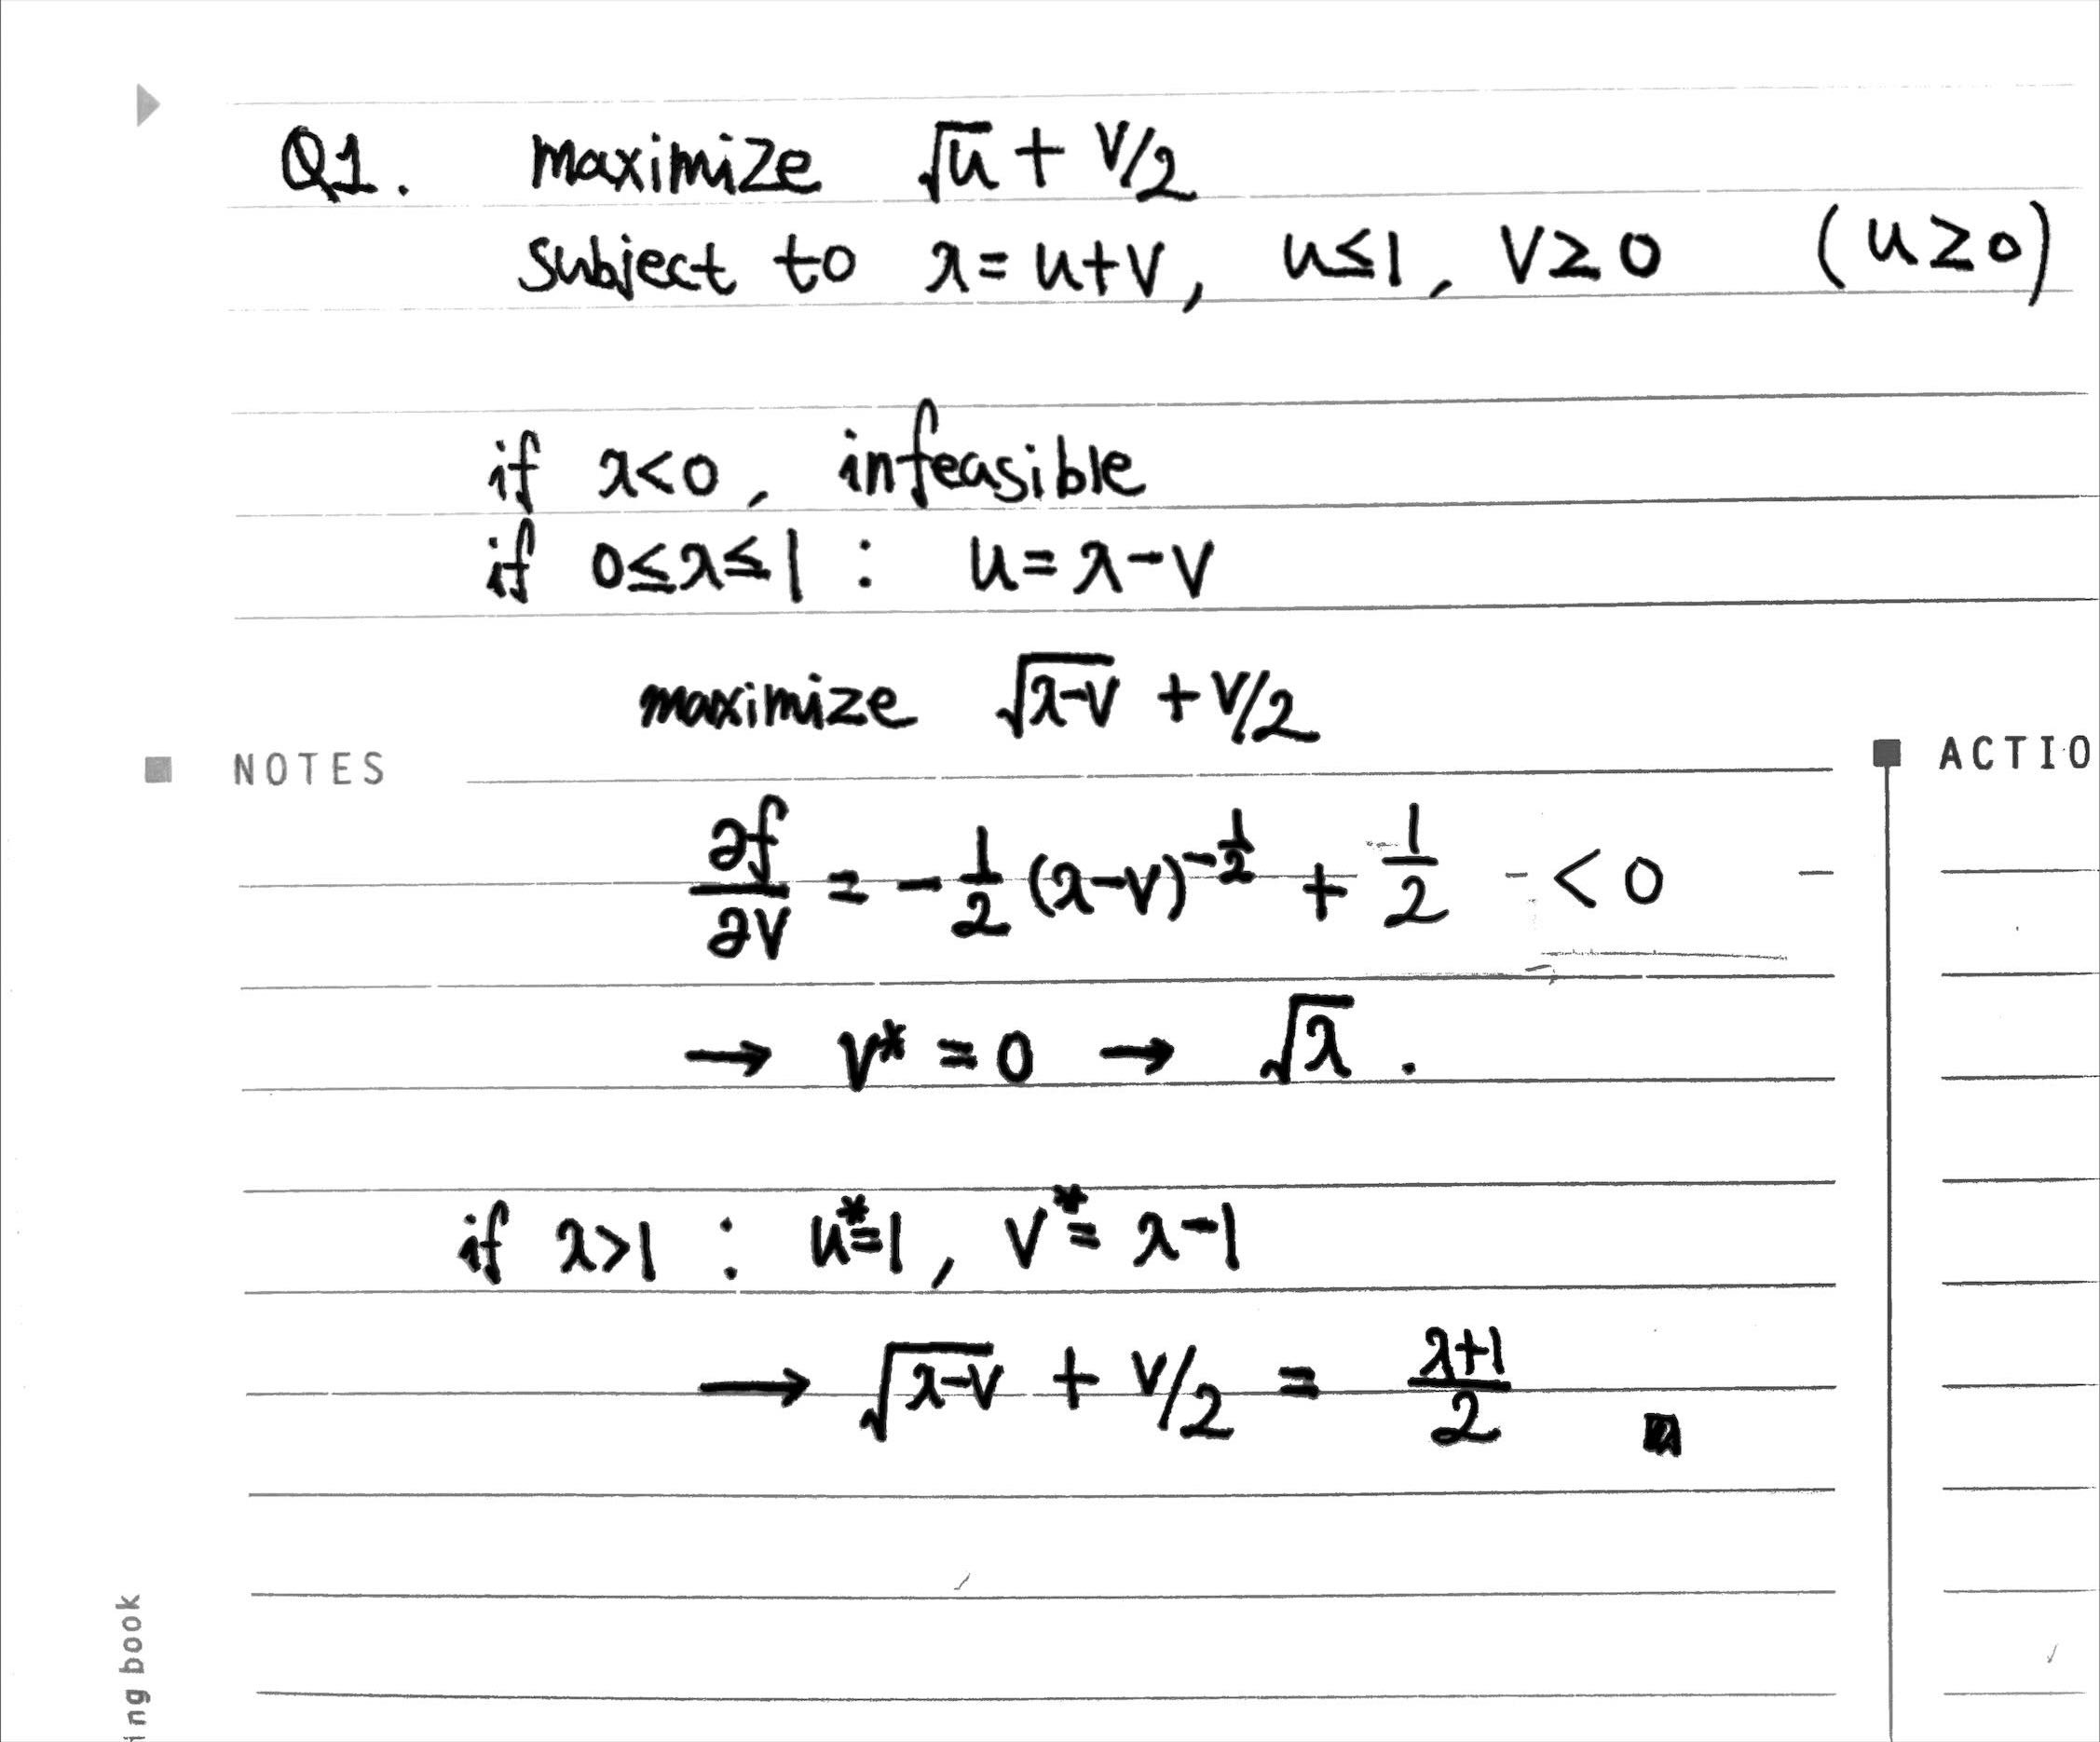 Q1. maximize √u + v/2
subject to x = u+v, u≤1, v≥0 (u≥0)
if x<0, infeasible
if 0≤x≤1 : u = x-v
maximize √(x-v) + v/2
NOTES
ACTIO
∂f/∂v = -1/2 (x-v)^(-1/2) + 1/2 < 0
→ v* = 0 → √x .
if x>1 : u*=1, v*= x-1
→ √(x-v) + v/2 = (x+1)/2
ing book